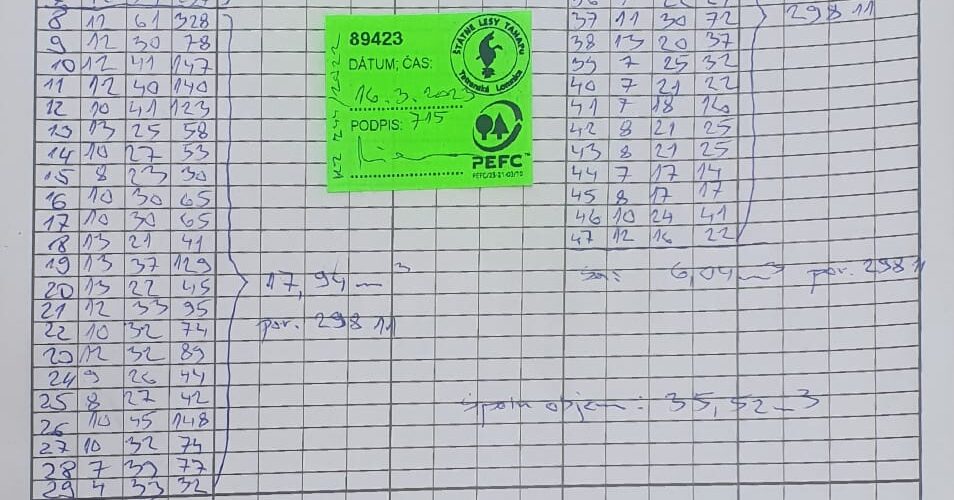 8 12 61 328
9 12 30 78
10 12 41 147
11 12 40 140
12 10 41 123
13 13 25 58
14 10 27 53
15 8 23 30
16 10 30 65
17 10 30 65
18 13 21 41
19 13 37 129
20 13 22 45
21 12 33 95
22 10 32 74
23 12 32 89
24 9 26 44
25 8 27 42
26 10 45 148
27 10 32 74
28 7 39 77
29 4 33 32
17,94 m3
por. 298 11
89423
DÁTUM; ČAS:
16.3.2023
PODPIS: 715
ŠTÁTNE LESY TANAPU
Tatranská Lomnica
PEFC™
PEFC/23-21-03/10
37 11 30 72
38 13 20 37
39 7 25 32
40 7 21 22
41 7 18 16
42 8 21 25
43 8 21 25
44 7 17 14
45 8 17 17
46 10 24 41
47 12 16 22
298 11
6,04 m3 por. 298 11
objem: 35,52 m3